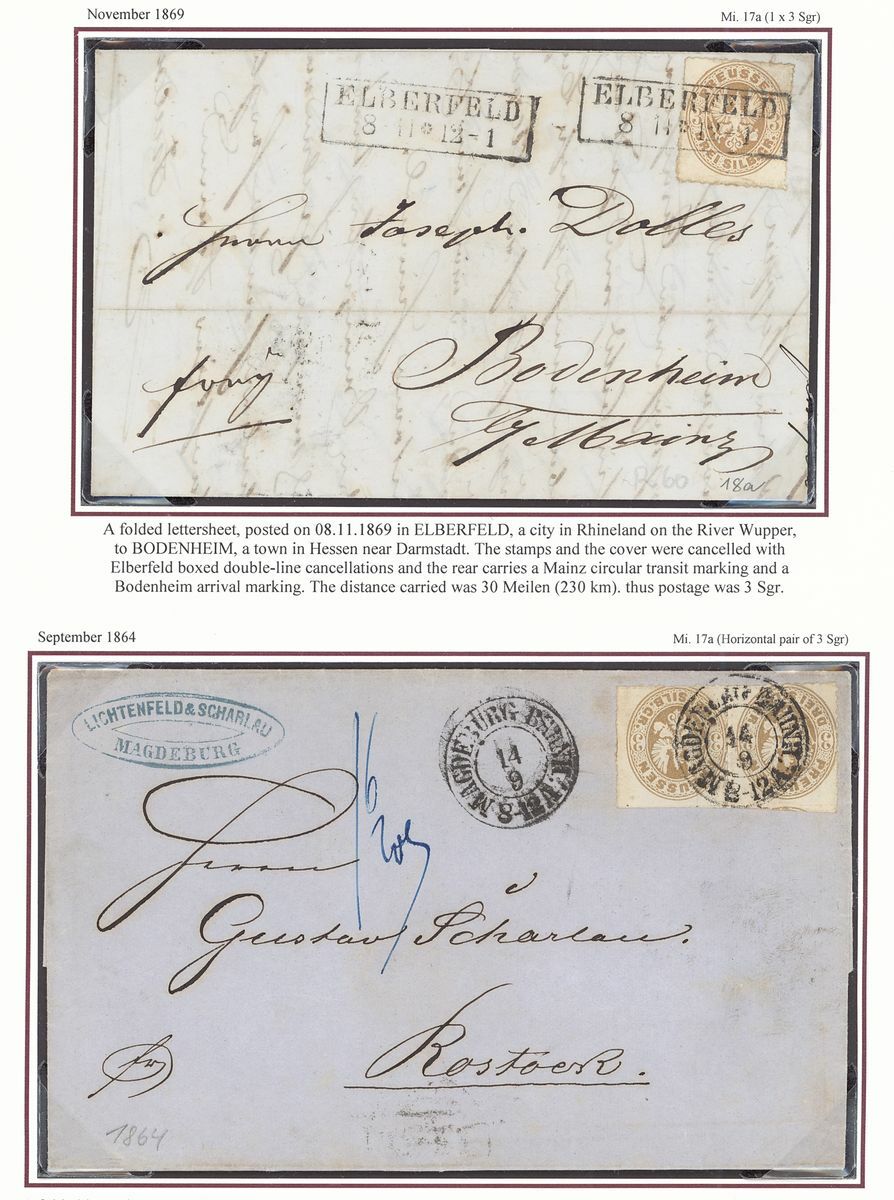 November 1869
Mi. 17a (1 x 3 Sgr)
ELBERFELD
8 11 * 12-1
ELBERFELD
8 11 * 12-1
PREUSSEN
DREI SILBGR.
Herrn Joseph. Dolles
Bodenheim
b/ Mainz
18a
A folded lettersheet, posted on 08.11.1869 in ELBERFELD, a city in Rhineland on the River Wupper,
to BODENHEIM, a town in Hessen near Darmstadt. The stamps and the cover were cancelled with
Elberfeld boxed double-line cancellations and the rear carries a Mainz circular transit marking and a
Bodenheim arrival marking. The distance carried was 30 Meilen (230 km). thus postage was 3 Sgr.
September 1864
Mi. 17a (Horizontal pair of 3 Sgr)
LICHTENFELD & SCHARLAU
MAGDEBURG
MAGDEBURG BAHNHOF
14
9
8-12
14
9
8-12
PREUSSEN
Herrn
Gustav Scharlau.
Rostock.
1864